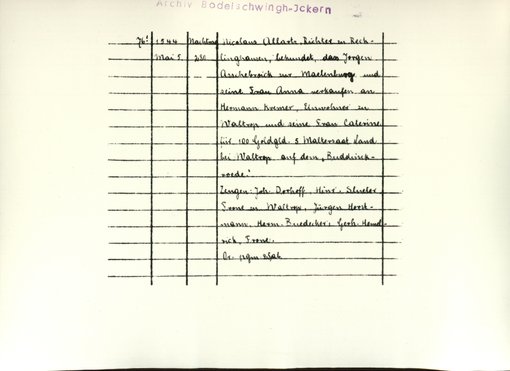 Archiv Bodelschwingh-Ickern
76. 1544 Nachtrag Nicolaus Allart, Richter in Reck-
Mai 5. 280 linghausen, bekundet, dass Jorgen
Asschebroick zur Maelenburg und
seine Frau Anna verkaufen an
Hermann Kremer, Einwohner in
Waltrop und seine Frau Caterine
für 100 Goldgld. 5 Maltersaat Land
bei Waltrop auf dem „Buddeinck-
roede."
Zeugen: Joh. Dorhoff, Hinr. Slueter,
Frone in Waltrop, Jürgen Horst-
mann, Herm. Buedecker, Gerh. Hemel-
rick, Frone.
Or.